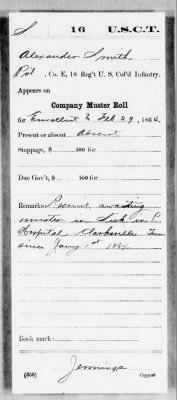 S | 16 | U.S.C.T.
Alexander Smith
Pvt, Co. E, 16 Reg't U. S. Col'd Infantry.
Appears on
Company Muster Roll
for Enrollment to Feb 29, 1864.
Present or absent Absent
Stoppage, $ 100 for
Due Gov't, $ 100 for
Remarks: Recruit awaiting
muster in Sick in
Hospital Clarksville Tenn
since Jany 1st 1864
Book mark:
Jennings
(358) Copyist.